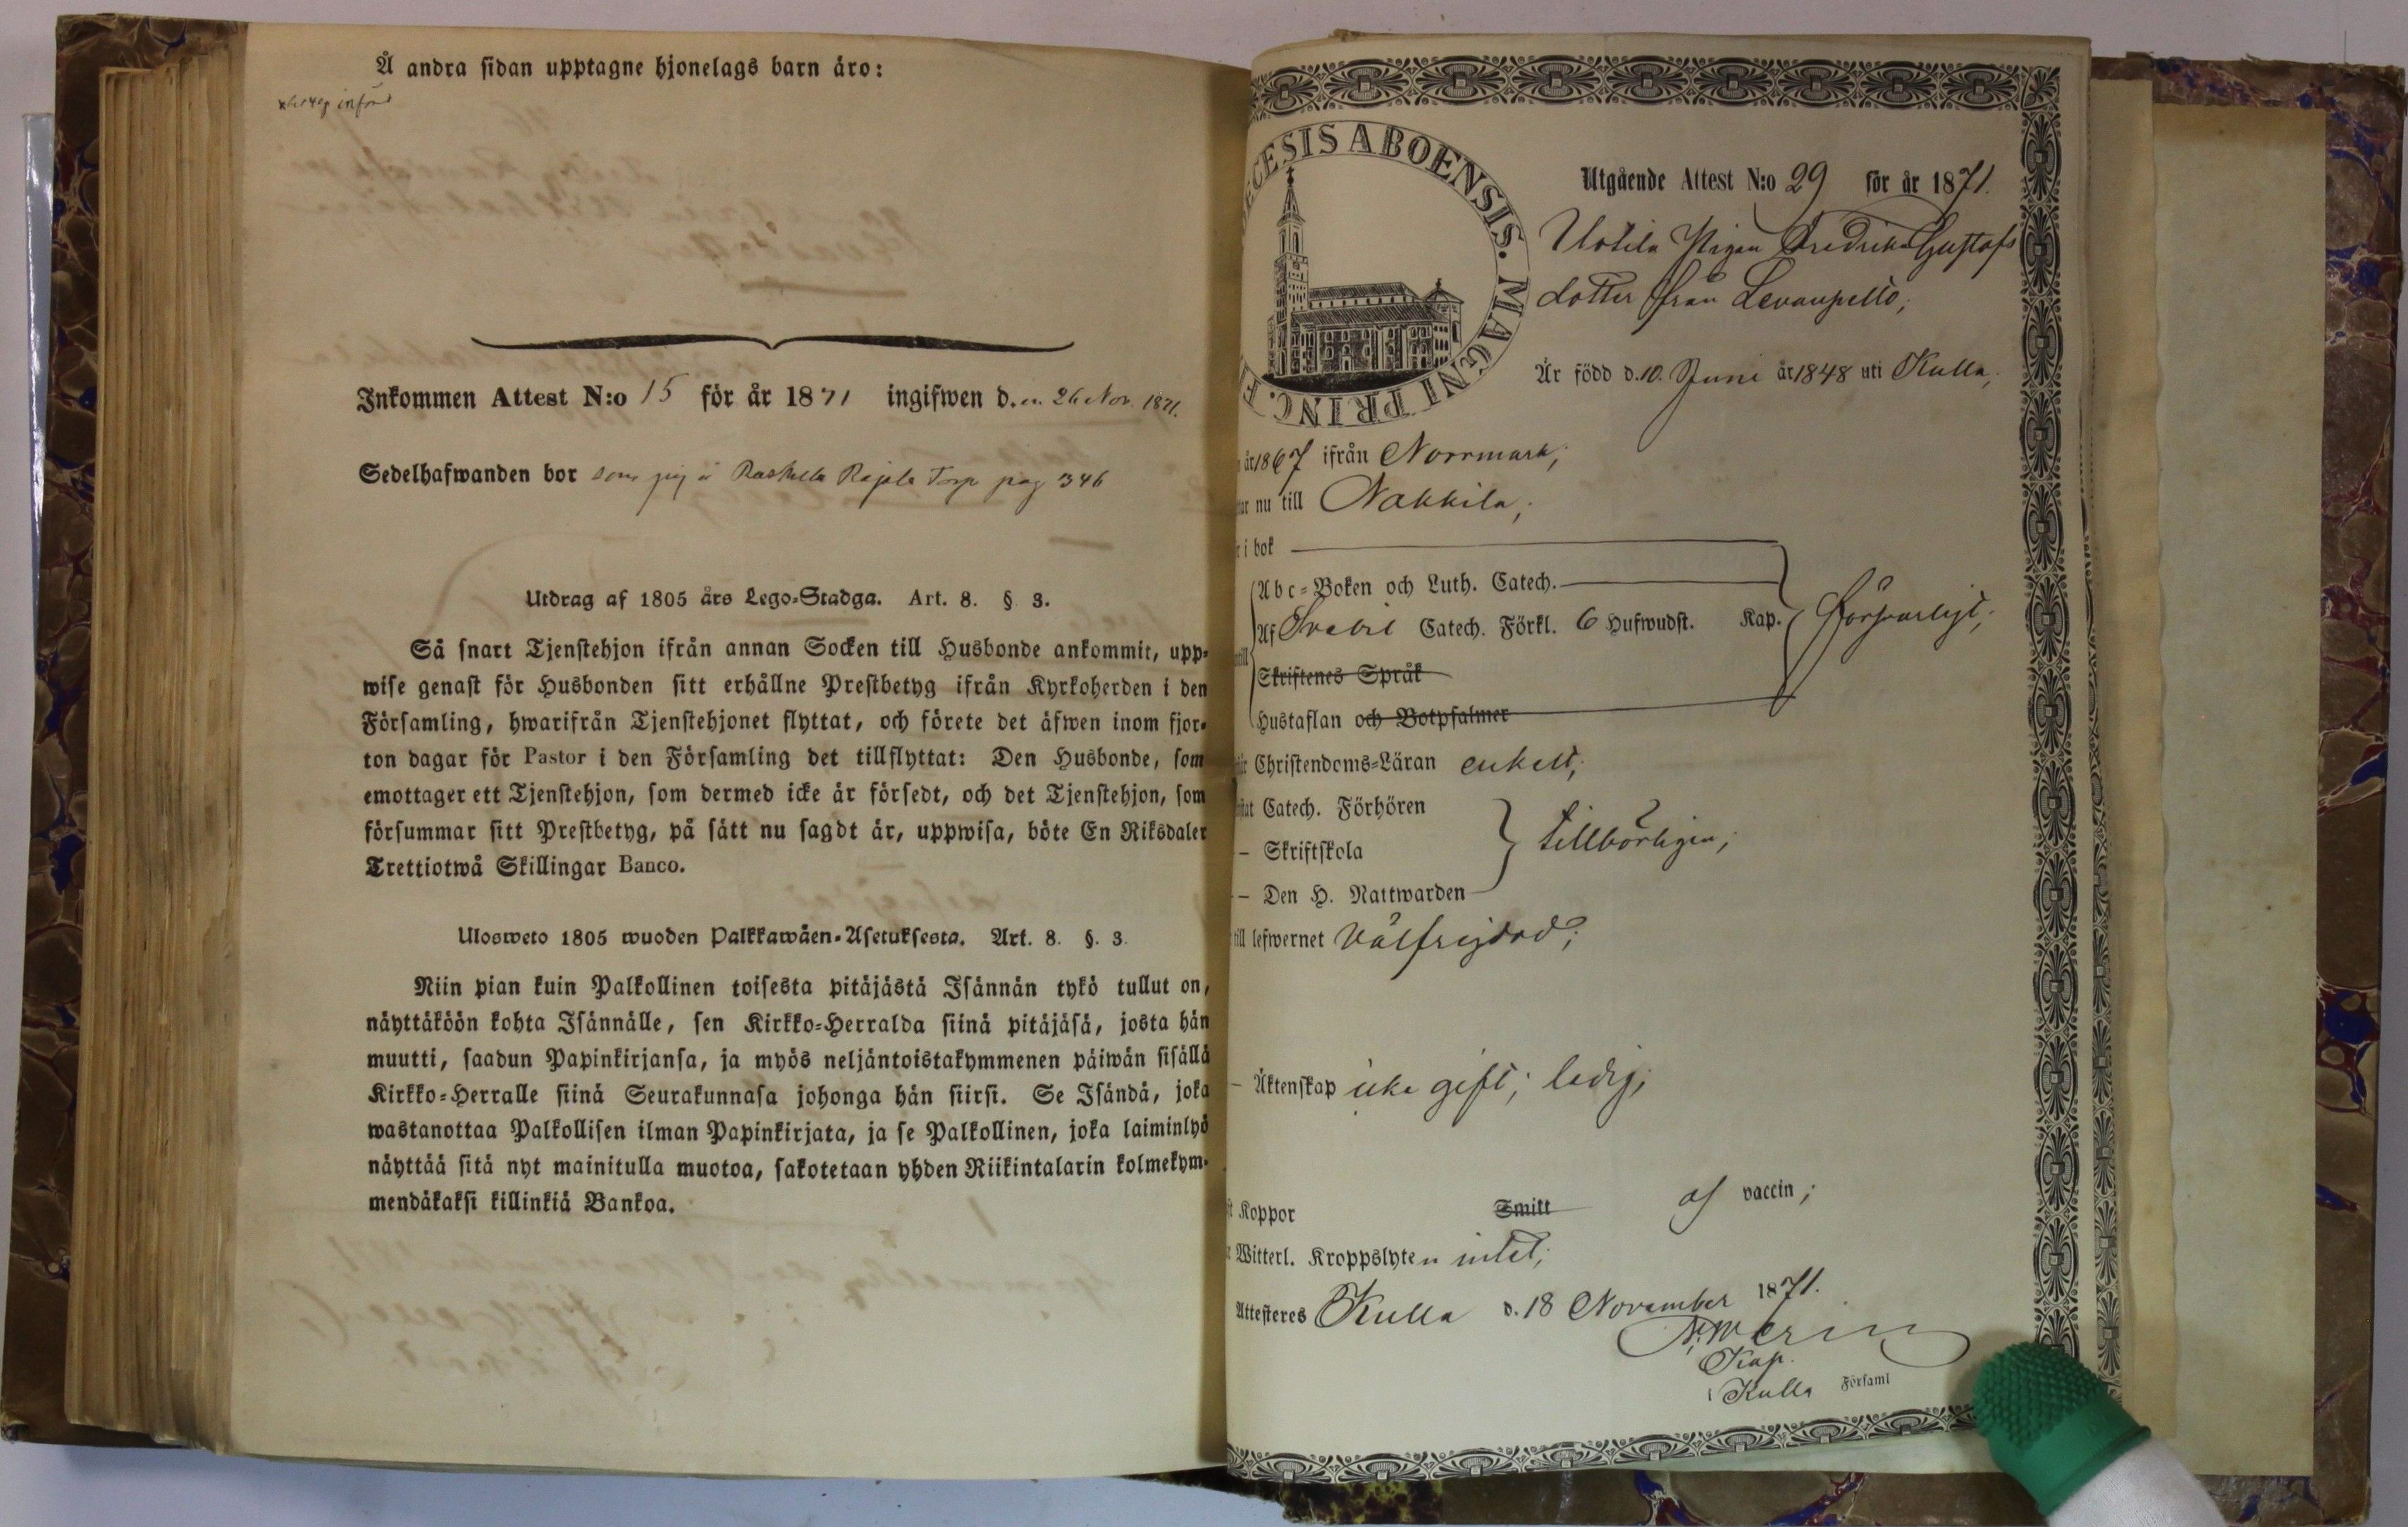 Å andra sidan upptagne hjonelags barn äro:
införd
Inkommen Attest N:o 15 för år 1871 ingifwen d. 26 Nov. 1871.
Sedelhafwanden bor som pig å Raskulla Rajala Torp pag 346
Utdrag af 1805 års Lego-Stadga. Art. 8. § 3.
Så snart Tjenstehjon ifrån annan Socken till Husbonde ankommit, upp-
wise genast för Husbonden sitt erhållne Prestbetyg ifrån Kyrkoherden i den
Församling, hwarifrån Tjenstehjonet flyttat, och förete det äfwen inom fjor-
ton dagar för Pastor i den Församling det tillflyttat: Den Husbonde, som
emottager ett Tjenstehjon, som dermed icke är försedt, och det Tjenstehjon, som
försummar sitt Prestbetyg, på sätt nu sagdt är, uppwisa, böte En Riksdaler
Trettiotwå Skillingar Banco.
Ulosweto 1805 wuoden Palkkawäen-Asetuksesta. Art. 8. §. 3.
Niin pian kuin Palkollinen toisesta pitäjästä Isännän tykö tullut on,
näyttäköön kohta Isännälle, sen Kirkko-Herralda siinä pitäjäsä, josta hän
muutti, saadun Papinkirjansa, ja myös neljäntoistakymmenen päiwän sisällä
Kirkko-Herralle siinä Seurakunnasa johonga hän siirsi. Se Isändä, joka
wastanottaa Palkollisen ilman Papinkirjata, ja se Palkollinen, joka laiminlyö
näyttää sitä nyt mainitulla muotoa, sakotetaan yhden Riikintalarin kolmekym-
mendäkaksi killinkiä Bankoa.
CESIS ABOENSIS. MAGNI PRINC. F
Utgående Attest N:o 29 för år 1871.
Uotila Pigan Fredrika Gustafs
dotter från Levanpelto;
Är född d. 10. Juni år 1848 uti Kulla;
år 1867 ifrån Norrmark;
nu till Nakkila;
i bok
Abc-Boken och Luth. Catech.
Af Svebil Catech. Förkl. 6 Hufwudst. Kap. försvarligt;
Skriftenes Språk
Hustaflan och Botpsalmer
Christendoms-Läran enkelt;
Catech. Förhören
– Skriftskola tillbörligen;
– Den H. Nattwarden
till lefwernet välfrejdad;
– Äktenskap icke gift; ledig;
Koppor Smitt af vaccin;
Witterl. Kroppslyten intet;
Attesteres Kulla d. 18 November 1871.
Kap.
i Kulla Församl